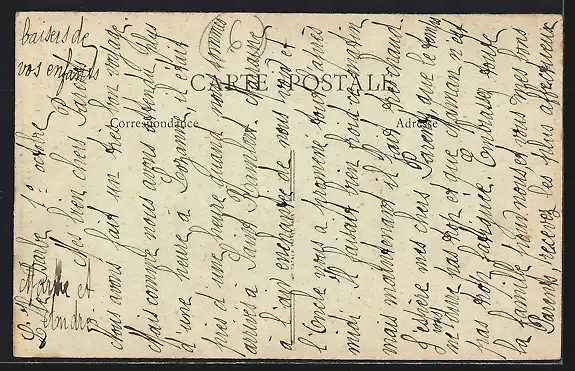 CARTE POSTALE
Correspondance
Adresse
St Rambert 1er octobre
Mes bien chers Parents
Nous avons fait un très bon voyage
Mais comme nous avons attendu plus
d'une heure à Lozanne, il était
près d'une heure quand nous sommes
arrivés à Saint Rambert. Maman
à l'air enchantée de nous voir et
l'Oncle nous a promené tout l'après
midi. Il faisait bien froid ce matin
mais maintenant il fait très chaud.
J'espère mes chers Parents que le temps
ne vous dure pas trop et que Maman n'est
pas trop fatiguée. Embrassez toute
la famille pour nous et vous mes bons
Parents, recevez les plus affectueux
baisers de
vos enfants
Marthe et